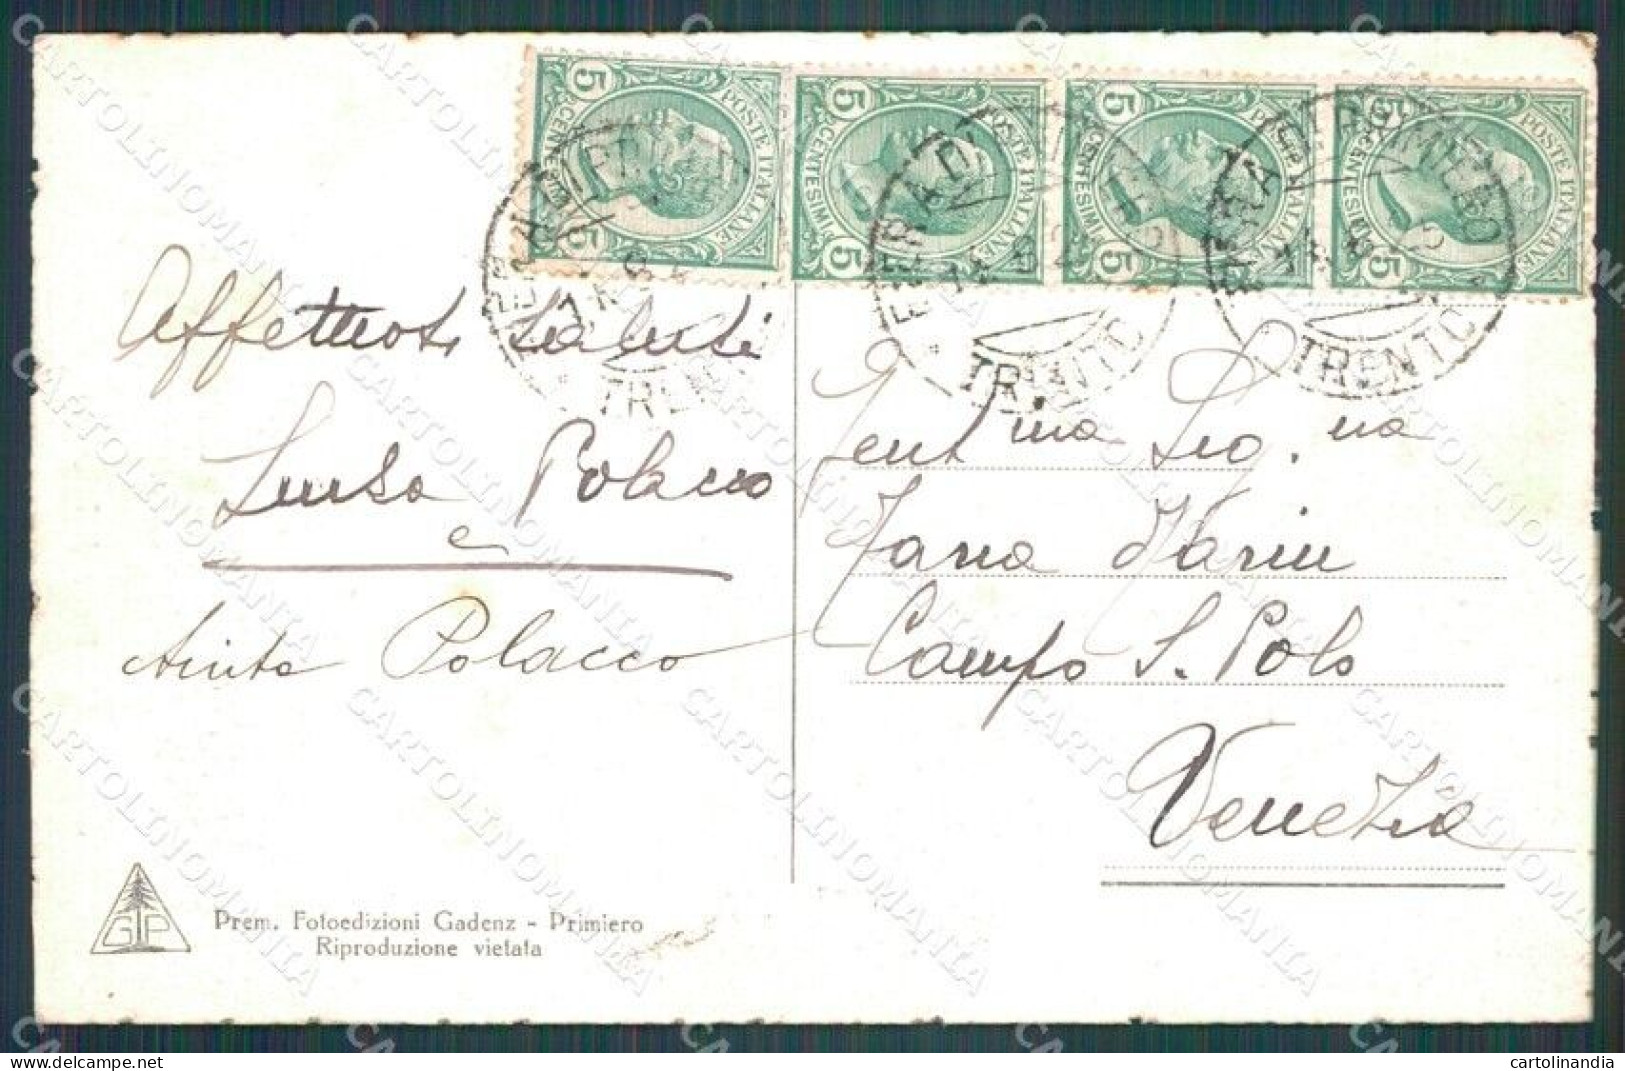 5 CENTESIMI 5 POSTE ITALIANE
5 CENTESIMI 5 POSTE ITALIANE
5 CENTESIMI 5 POSTE ITALIANE
5 CENTESIMI 5 POSTE ITALIANE
FIERA DI PRIMIERO
TRENTO
TRENTO
TRENTO
Affettuosi saluti
Luisa Polacco
e
Polacco
Gent ma Sig. na
Campo S. Polo
Venezia
GP
Prem. Fotoedizioni Gadenz - Primiero
Riproduzione vietata
CARTOLINOMANIA
cartolinandia